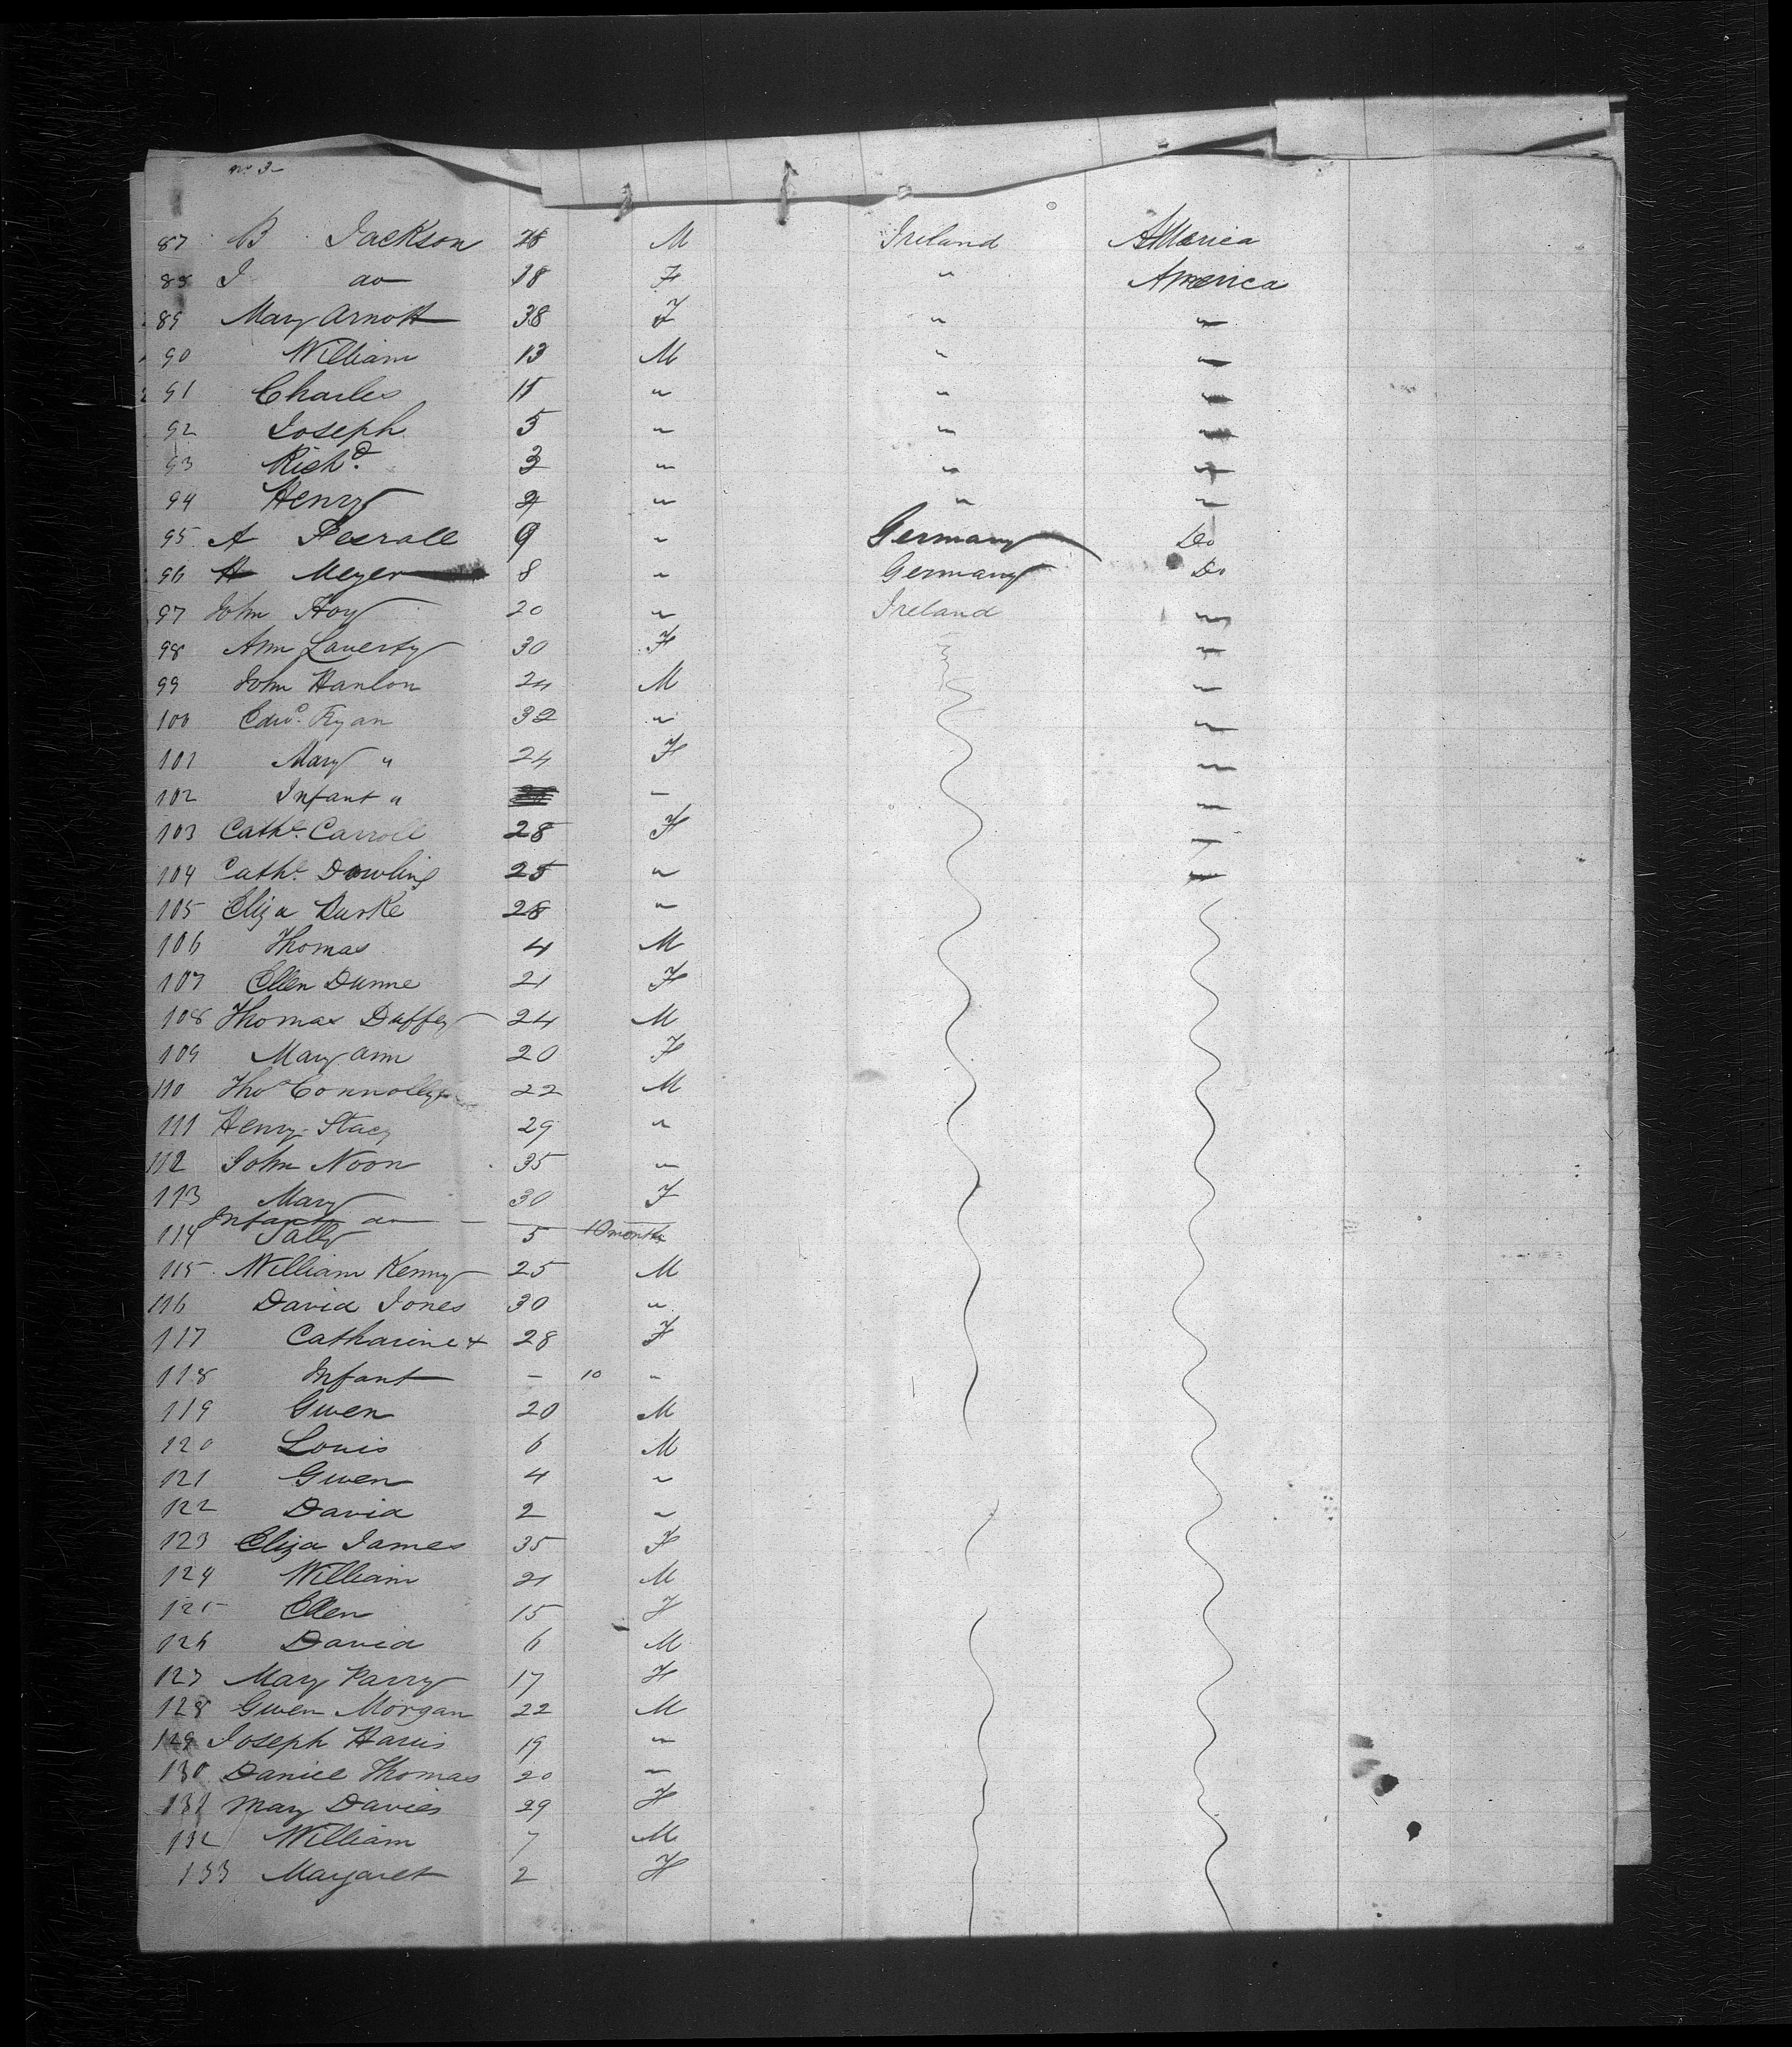 No 3
87 B Jackson 28 M Ireland America
88 I do 18 F " America
89 Mary Arnott 38 F " "
90 William 13 M " "
91 Charles 11 " " "
92 Joseph 5 " " "
93 Richd 3 " " "
94 Henry 2 " " "
95 A 9 " Germany Do
96 H Meyer 8 " Germany Do
97 John Hoy 20 " Ireland "
98 Ann Laverty 30 F "
99 John Hanlon 24 M "
100 Edwd Ryan 32 " "
101 Mary " 24 F "
102 Infant " - "
103 Cathe Carroll 28 F "
104 Cathe Dowling 25 " "
105 Eliza Burke 28 "
106 Thomas 4 M
107 Ellen Dunne 21 F
108 Thomas Duffey 24 M
109 Mary Ann 20 F
110 Thos Connolly 22 M
111 Henry Stacy 29 "
112 John Noon 35 "
113 Mary 30 F
Infant do - 10 months
114 Sally 5
115 William Kenny 25 M
116 David Jones 30 "
117 Catharine + 28 F
118 Infant - 10 "
119 Gwen 20 M
120 Louis 6 M
121 Gwen 4 "
122 David 2 "
123 Eliza James 35 F
124 William 21 M
125 Ellen 15 F
126 David 6 M
127 Mary Parry 17 F
128 Gwen Morgan 22 M
129 Joseph Harris 19 "
130 Daniel Thomas 20 "
131 Mary Davies 29 F
132 William 7 M
133 Margaret 2 F